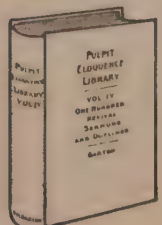 PULPIT
ELOQUENCE
LIBRARY
VOL IV
PULPIT
ELOQUENCE
LIBRARY
VOL IV
ONE HUNDRED
REVIVAL
SERMONS
AND OUTLINES
BARTON